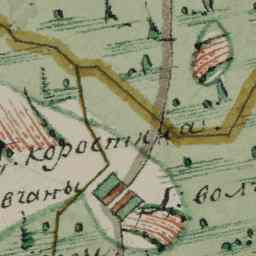 коростина.
вчаны
волч